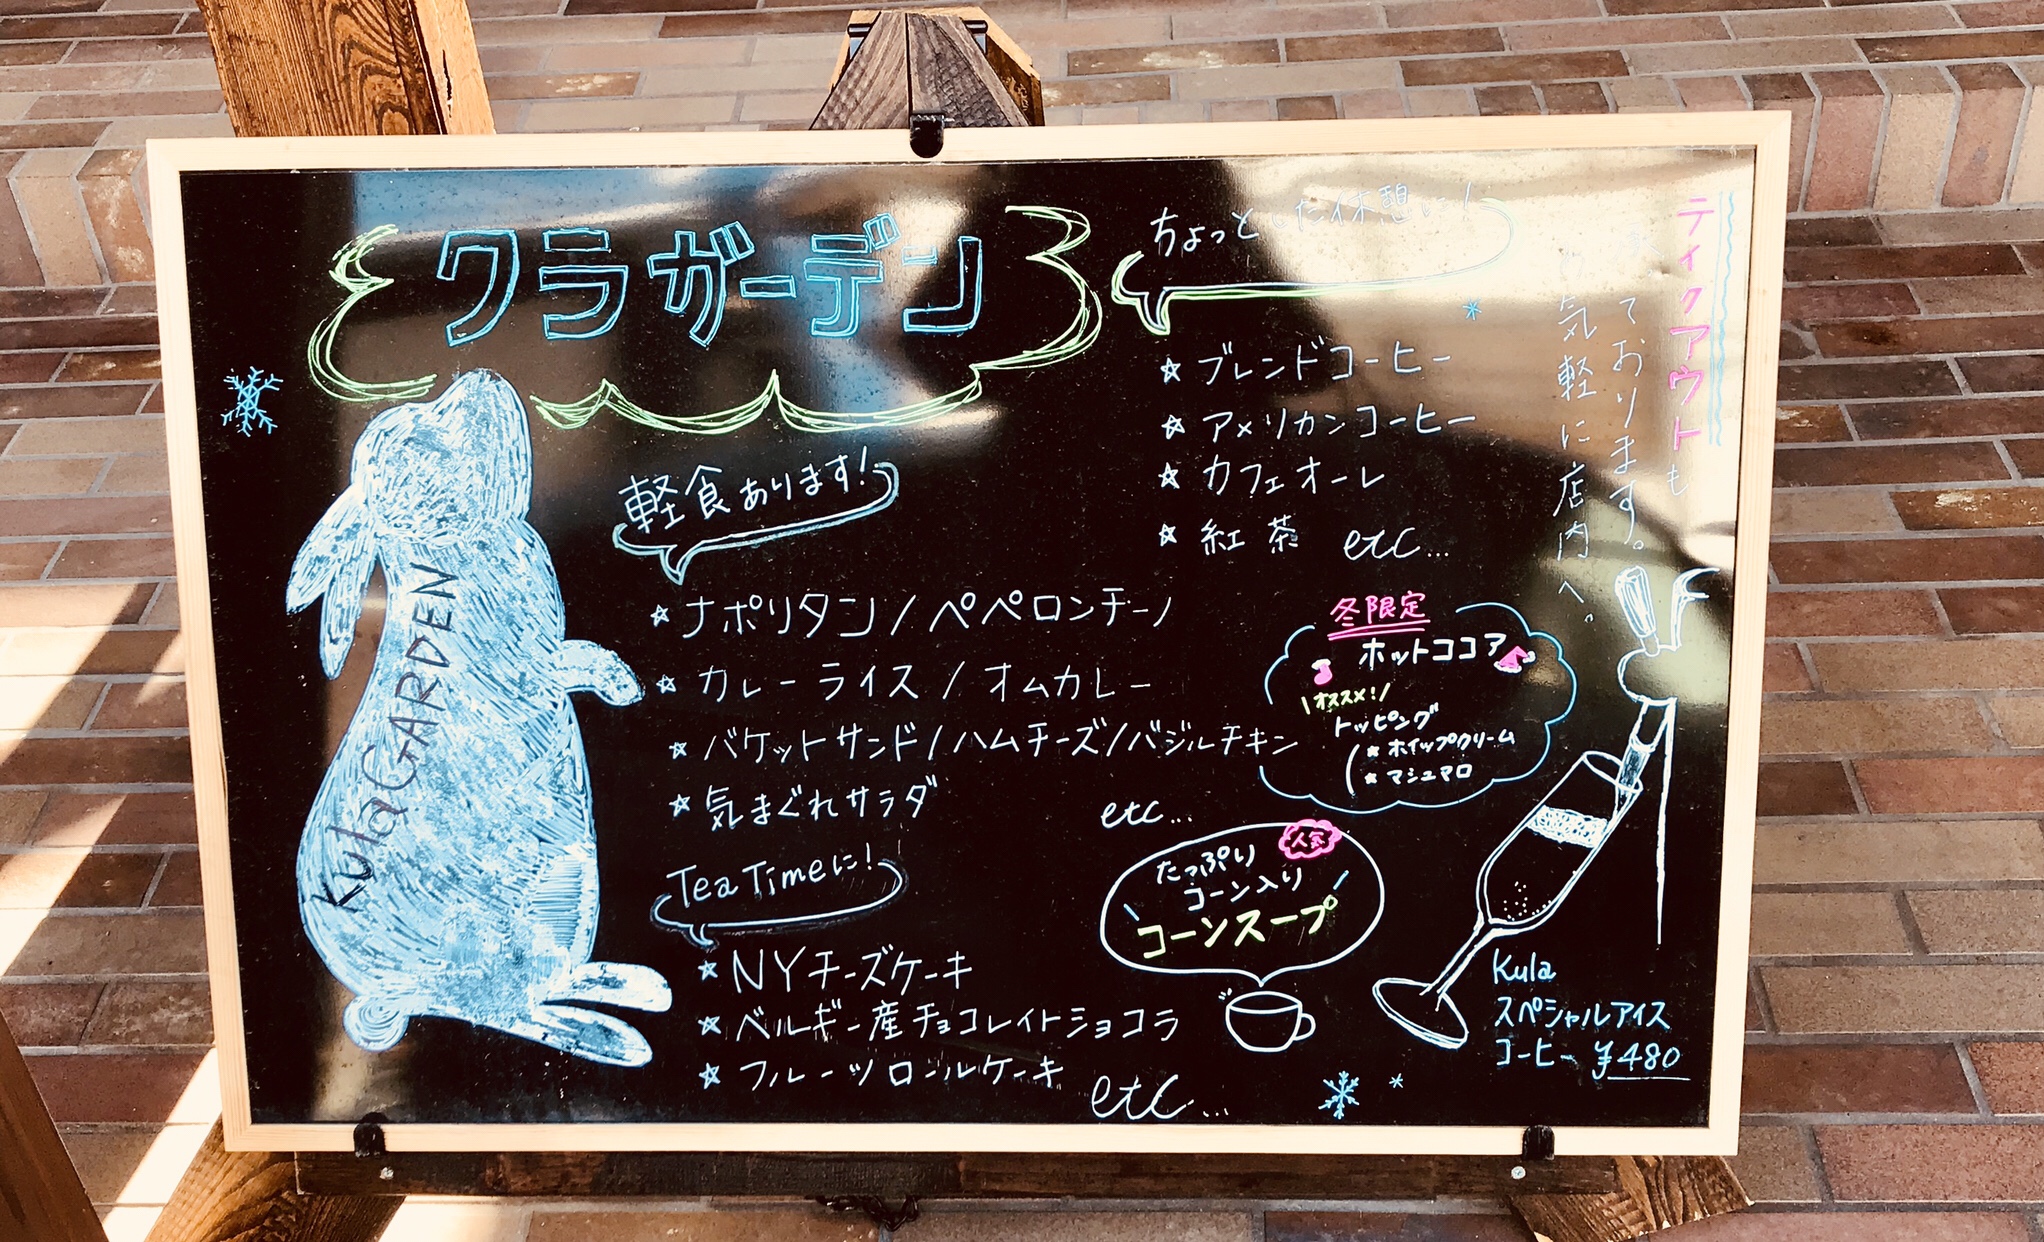 クラガーデン
KulaGARDEN
軽食あります!
☆ナポリタン/ペペロンチーノ
☆カレーライス/オムカレー
☆バケットサンド/ハムチーズ/バジルチキン
☆気まぐれサラダ
etc...
Tea Timeに!
☆NYチーズケーキ
☆ベルギー産チョコレイトショコラ
☆フルーツロールケーキ
etc...
ちょっとした休憩に!
☆ブレンドコーヒー
☆アメリカンコーヒー
☆カフェオーレ
☆紅茶 etc...
テイクアウトも
ております。
気軽に店内へ。
冬限定
ホットココア
\オススメ!/
トッピング
☆ホイップクリーム
☆マシュマロ
人気
たっぷり
コーン入り
コーンスープ
Kula
スペシャルアイス
コーヒー ¥480